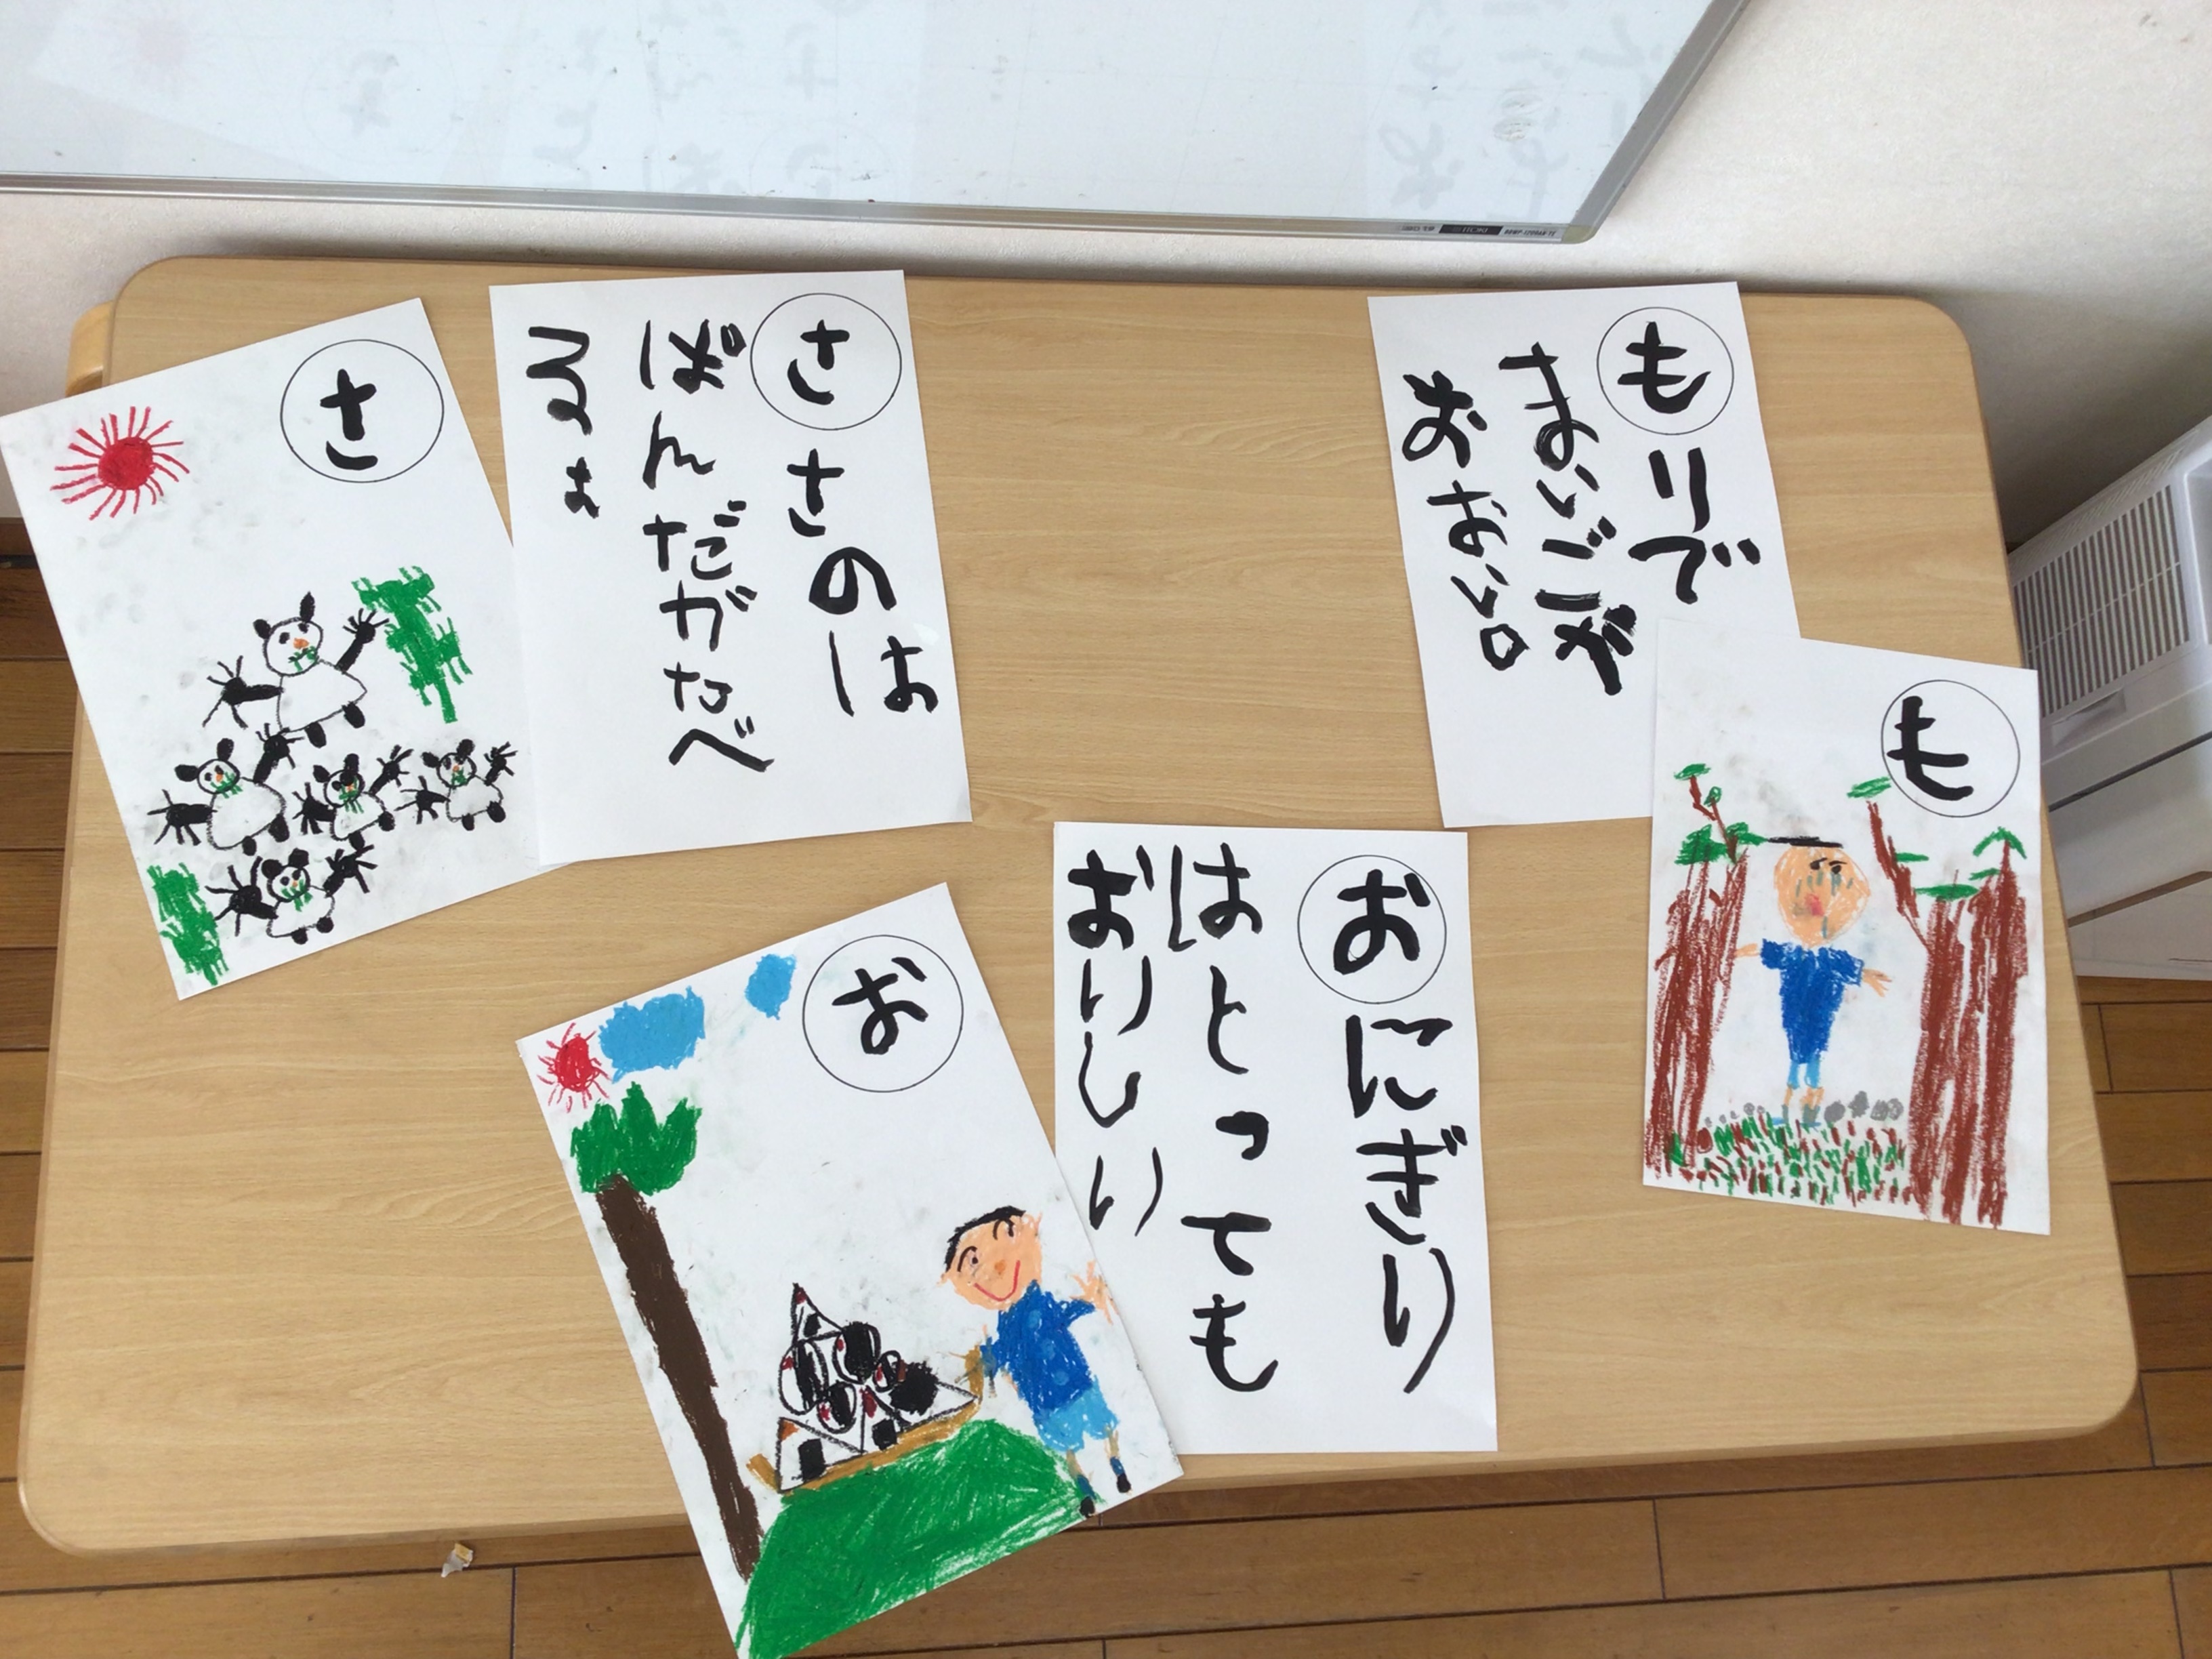 さ
ささのは
ぱんだがたべ
るよ
もりで
まいごが
おおい。
も
お
おにぎり
はとっても
おいしい
ITOKI